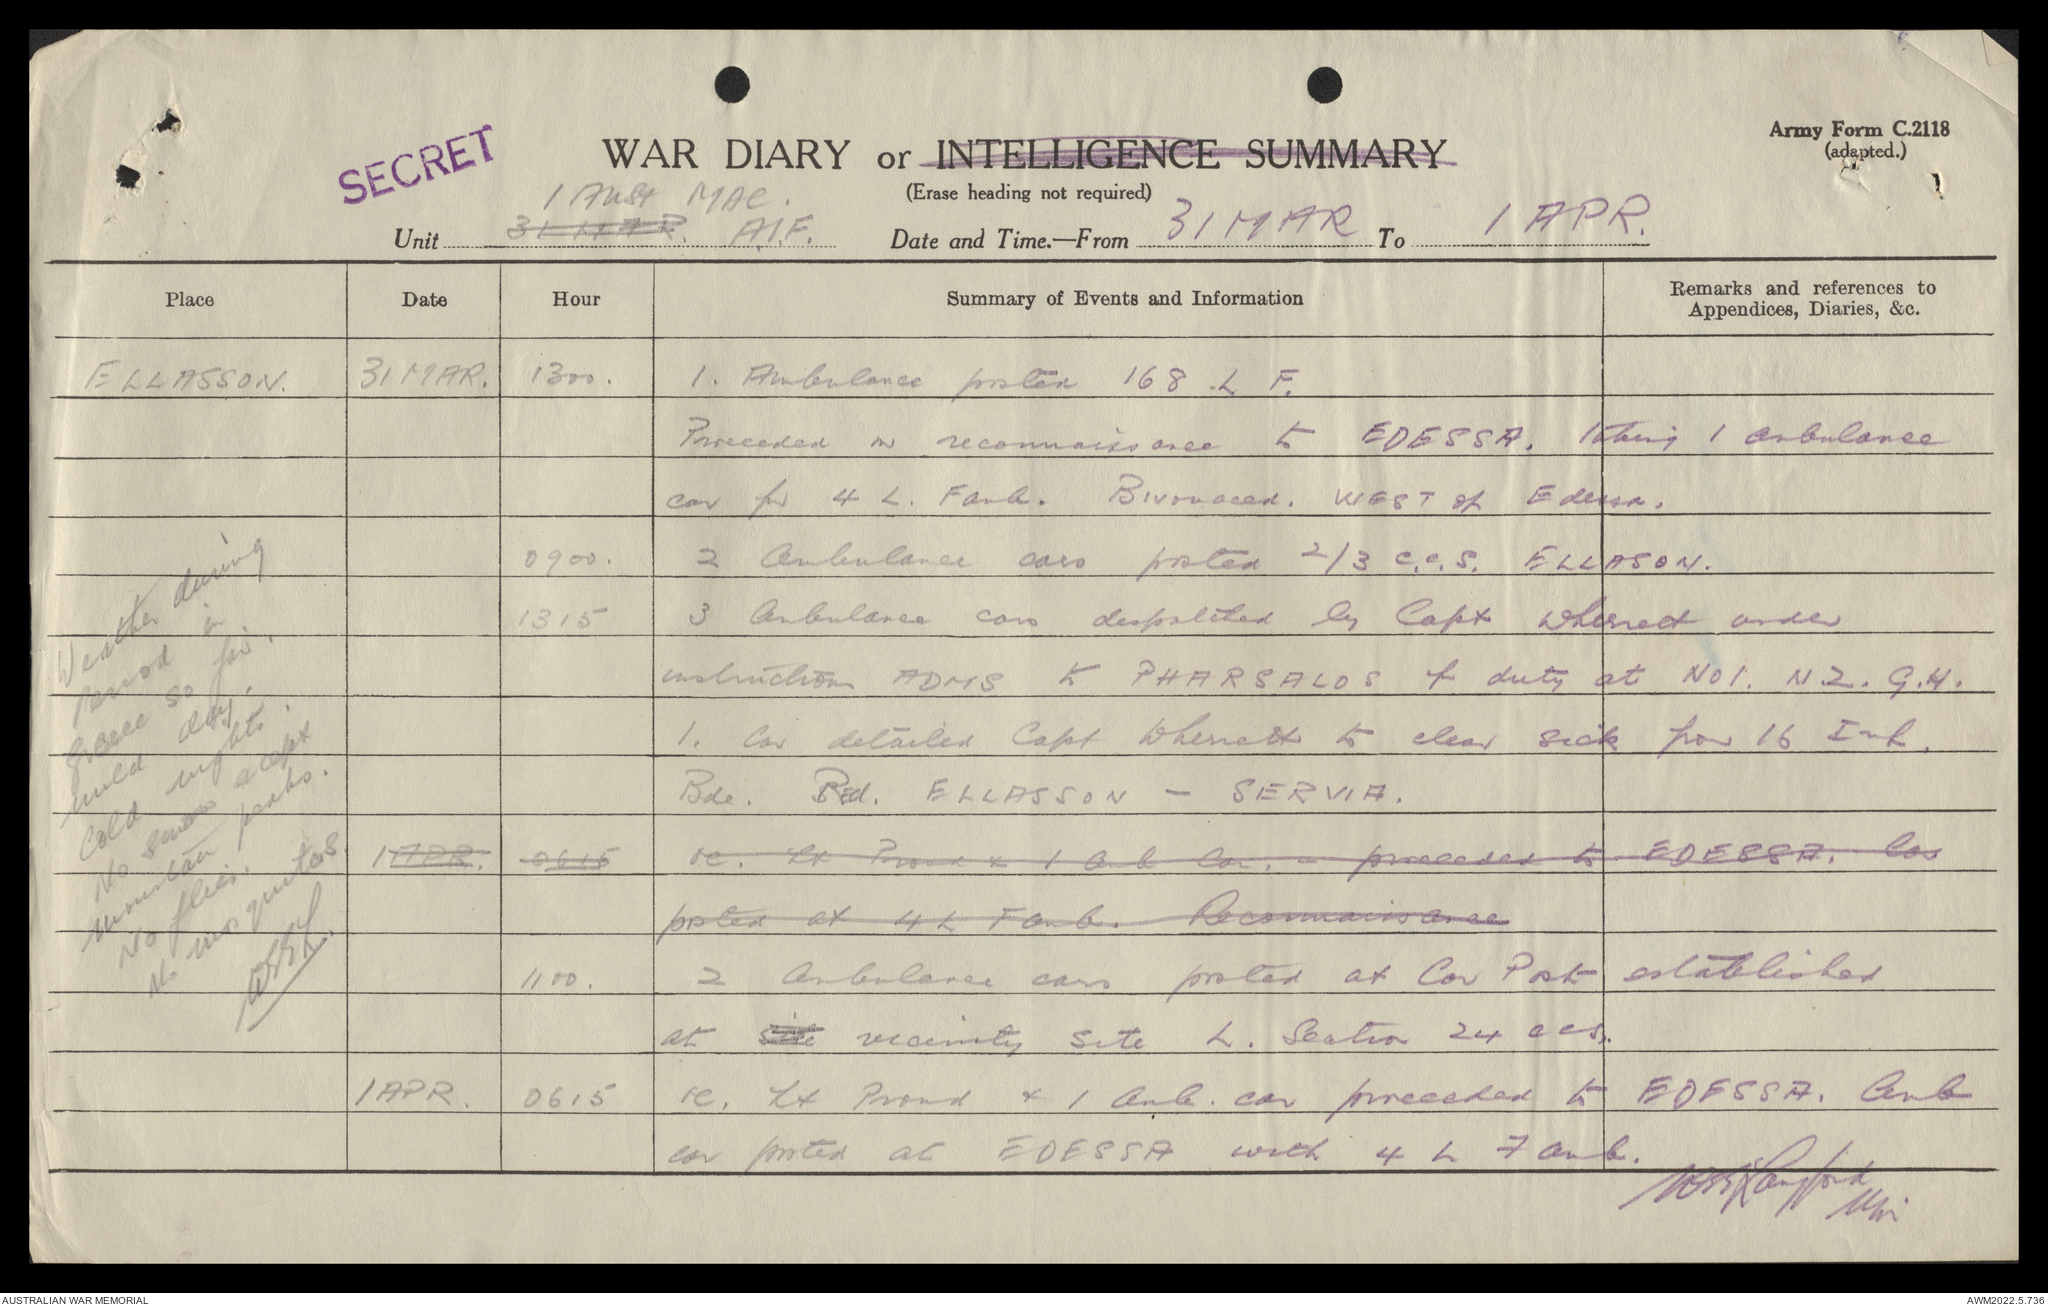 SECRET
WAR DIARY or INTELLIGENCE SUMMARY
(Erase heading not required)
Army Form C.2118
(adapted.)
1 Aust MAC.
Unit 31 MAR. A.I.F. Date and Time.—From 31 MAR To 1 APR.
Place Date Hour Summary of Events and Information Remarks and references to Appendices, Diaries, &c.
ELLASSON. 31 MAR. 1300. 1. Ambulance posted 168 L F.
Proceeded on reconnaissance to EDESSA. taking 1 ambulance
car for 4 L. Famb. Bivouaced. WEST of Edessa.
0900. 2 Ambulance cars posted 2/3 C.C.S. ELLASON.
1315 3 Ambulance cars despatched by Capt Wherrett under
instructions ADMS to PHARSALOS for duty at No 1. N.Z. G.H.
1. Car detailed Capt Wherrett to clear sick from 16 Inf.
Bde. Rd. ELLASSON - SERVIA.
1 APR. 0615 OC. Lt Proud & 1 Amb Car. - proceeded to EDESSA. Car
posted at 4 L Famb. Reconnaissance
1100. 2 Ambulance cars posted at Car Post established
at site vicinity site L. Section 24 CCS.
1 APR. 0615 OC. Lt Proud & 1 Amb. car proceeded to EDESSA. Amb
car posted at EDESSA with 4 L Famb.
Weather during
period in
Greece so far.
mild day.
Cold nights.
No snow except
mountain peaks.
No flies.
No mosquitos
AUSTRALIAN WAR MEMORIAL
AWM2022.5.736